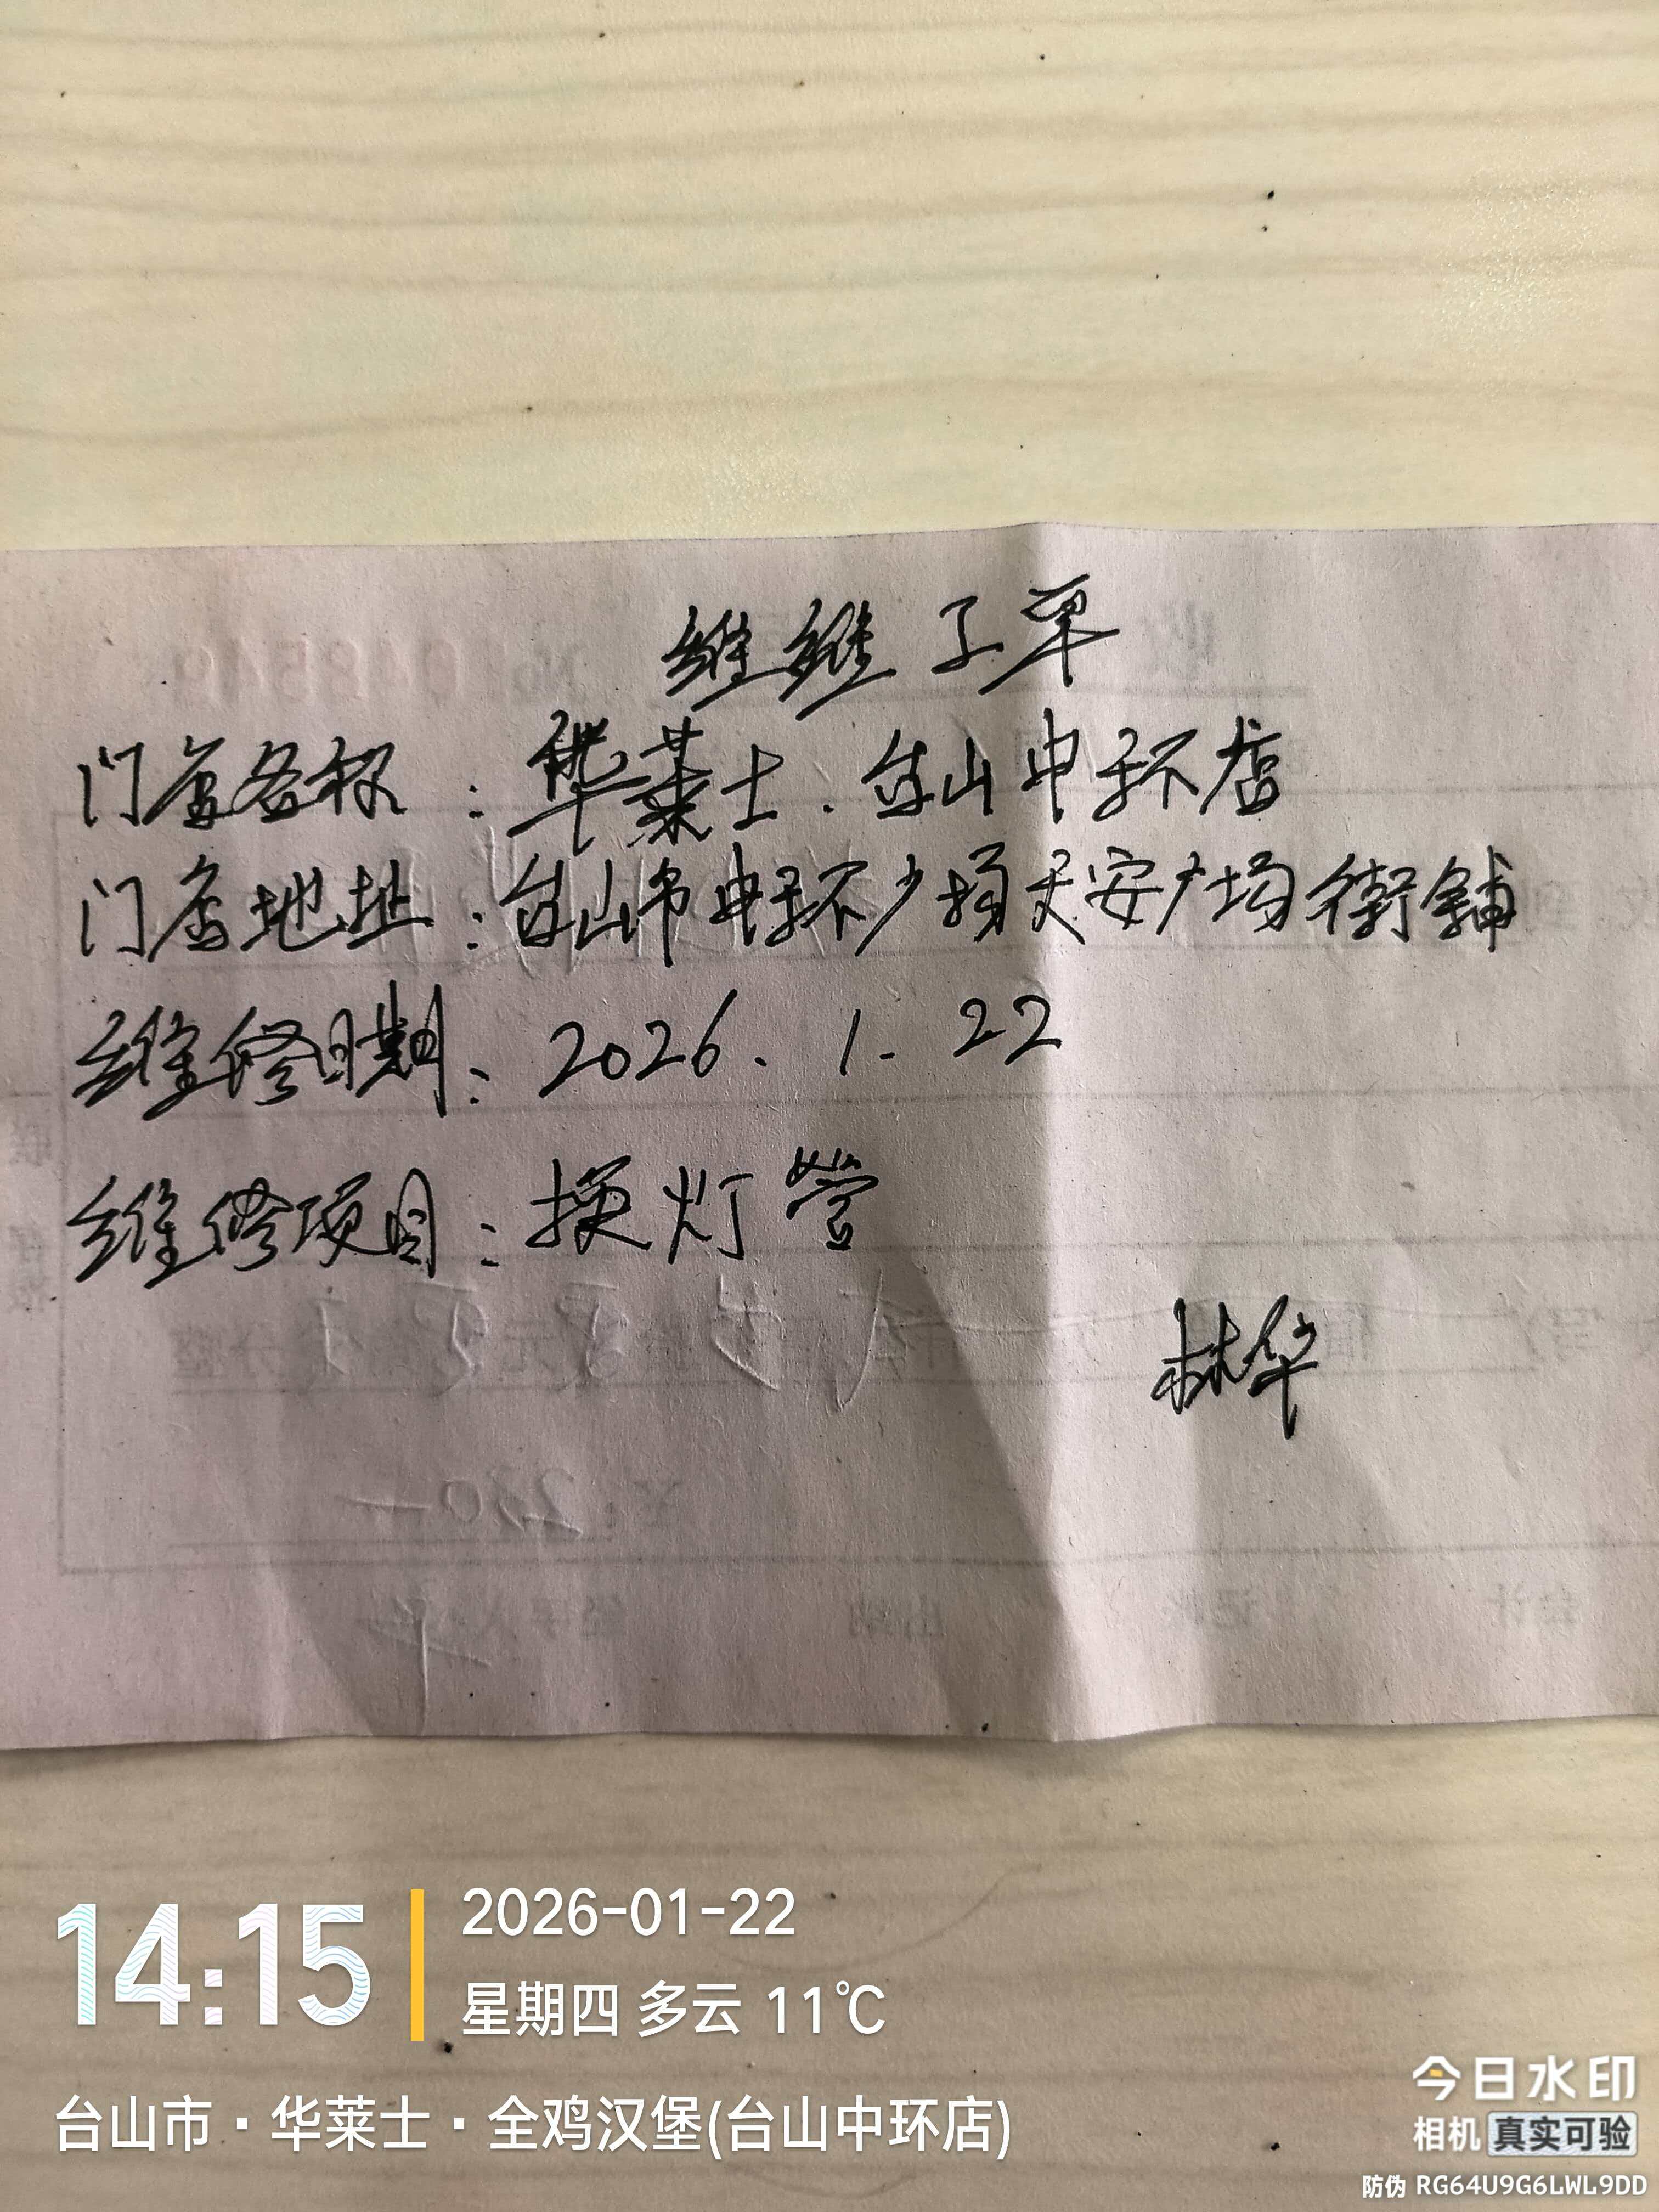 维继工单
门店名称：华莱士.台山中环店
门店地址：台山市中环广场天安广场街铺
维修日期：2026.1.22
维修项目：换灯管
林华
14:15
2026-01-22
星期四 多云 11℃
台山市·华莱士·全鸡汉堡(台山中环店)
今日水印
相机 真实可验
防伪 RG64U9G6LWL9DD